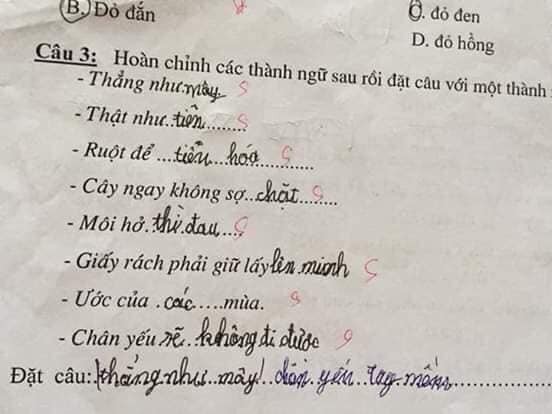 B. Đỏ đắn
C. đỏ đen
D. đỏ hồng
Câu 3: Hoàn chỉnh các thành ngữ sau rồi đặt câu với một thành
- Thẳng như mây
- Thật như..tiền........
- Ruột để ...tiêu..hóa.........
- Cây ngay không sợ..chặt.......
- Môi hở.thì.đau....
- Giấy rách phải giữ lấy lên minh
- Ước của .các.....mùa.
- Chân yếu sẽ..không đi được
Đặt câu: thẳng như...mây!..chân..yếu..tay mềm.............